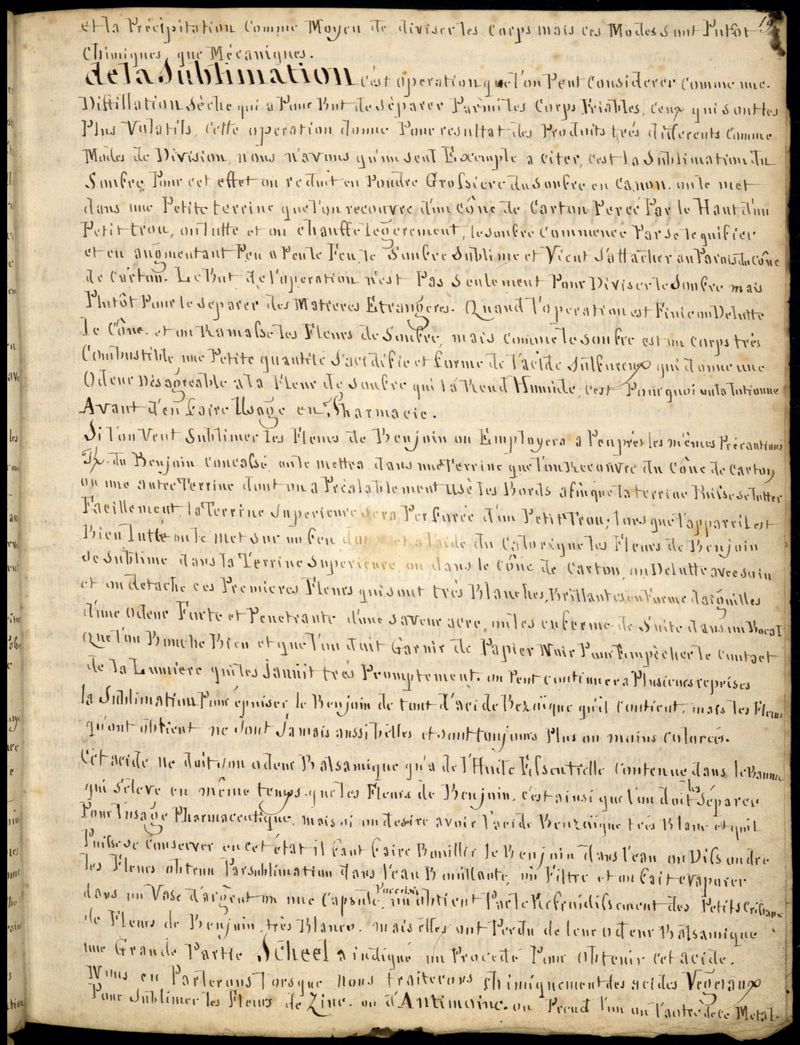 19
et la Précipitation Comme Moyen de diviser les Corps mais ces Modes sont Putôt
Chimiques, que Mécaniques.
de la Sublimation c'est operation que l'on Peut Considerer comme une
Distillation Sèche qui a Pour But de Séparer Parmi les Corps Friables, Ceux qui sont les
Plus Volatils, Cette operation donne Pour resultat des Produits très diferents Comme
Modes de Division, nous n'avons qu'un seul Exemple a Citer, c'est la Sublimation du
Soufre, Pour cet effet on reduit en Poudre Grossiere du Soufre en Canon. on le met
dans une Petite terrine que l'on recouvre d'un Cône de Carton Percé Par le Haut d'un
Petit trou, on lutte et on chauffe legerement, le soufre Commence Par se lequifier
et en augmentant Peu a Peu le Feu, le Soufre Sublime et Vient S'attacher au Parois du Cône
de Carton. Le But de l'operation n'est Pas Seulement Pour Diviser le Soufre mais
Plutôt Pour le Séparer des Matieres Etrangeres. Quand l'operation est Finie on Delutte
le Cône. et on Ramasse les Fleurs de Soufre, mais comme le Soufre est un Corps très
Combustible, une Petite quantité S'acidifie et forme de l'acide Sulfureux qui donne une
Odeur Désagreable a la Fleur de Soufre qui la Rend Humide, c'est Pourquoi on la
Avant d'en faire Usage en Pharmacie.
Si l'on Veut Sublimer les Fleurs de Benjoin on Employera a Peu près les mêmes Précautions
du Benjoin Concassé on le mettra dans une Terrine que l'on Recouvre du Cône de Carton
ou une autre Terrine dont on a Préalablement Usé les Bords afin que la terrine Puisse se lutter
Facillement la Terrine Superieure sera Perforée d'un Petit Trou; lors que l'appareil est
Bien lutté on le met sur un feu doux et a l'aide du Calorique les Fleurs de Benjoin
se Sublime dans la Terrine Superieure ou dans le Cône de Carton, on Delutte avec Soin
et on detache ces Premieres Fleurs qui sont très Blanches, Brillantes en Forme d'aiguilles
d'une Odeur Forte et Penetrante d'une Saveur acre, on les enferme de Suite dans un Bocal
Que l'on Bouche Bien et que l'on doit Garnir de Papier Noir Pour Empêcher le Contact
de la Lumiere qui les Jaunit très Promptement. on Peut Continuer a Plusieurs reprises
la Sublimation Pour épuiser le Benjoin de tout d'acide Bezoïque qu'il Contient. mais les Fleurs
qu'ont obtient ne sont Jamais aussi belles et sont toujours Plus ou moins Colorées.
Cet acide ne doit son odeur Balsamique qu'a de l'Huile Essentielle Contenue dans le Baume
qui S'eleve en même temps que les Fleurs de Benjoin. c'est ainsi que l'on doit Séparer
Pour l'usage Pharmaceutique. mais si on desire avoir l'acide Benzoïque très Blanc et qu'il
Puisse se Conserver en cet état il faut faire Bouillir le Benjoin dans l'eau ou Dissoudre
les Fleurs obtenu Par sublimation dans l'eau Bouillante, on Filtre et on fait evaporer
dans un Vase d'argent ou une Capsule Porcelaine, on obtient Par le Refroidissement des Petits Cristaux
de Fleurs de Benjoin, très Blancs. mais elles ont Perdu de leur odeur Balsamique
une Grande Partie Scheel a indiqué un Procedé Pour obtenir cet acide.
Nous en Parlerons lorsque nous traiterons Chimiquement des acides Vegetaux
Pour Sublimer les Fleurs de Zinc. ou d'Antimoine. on Prend l'un ou l'autre de ce Metal.